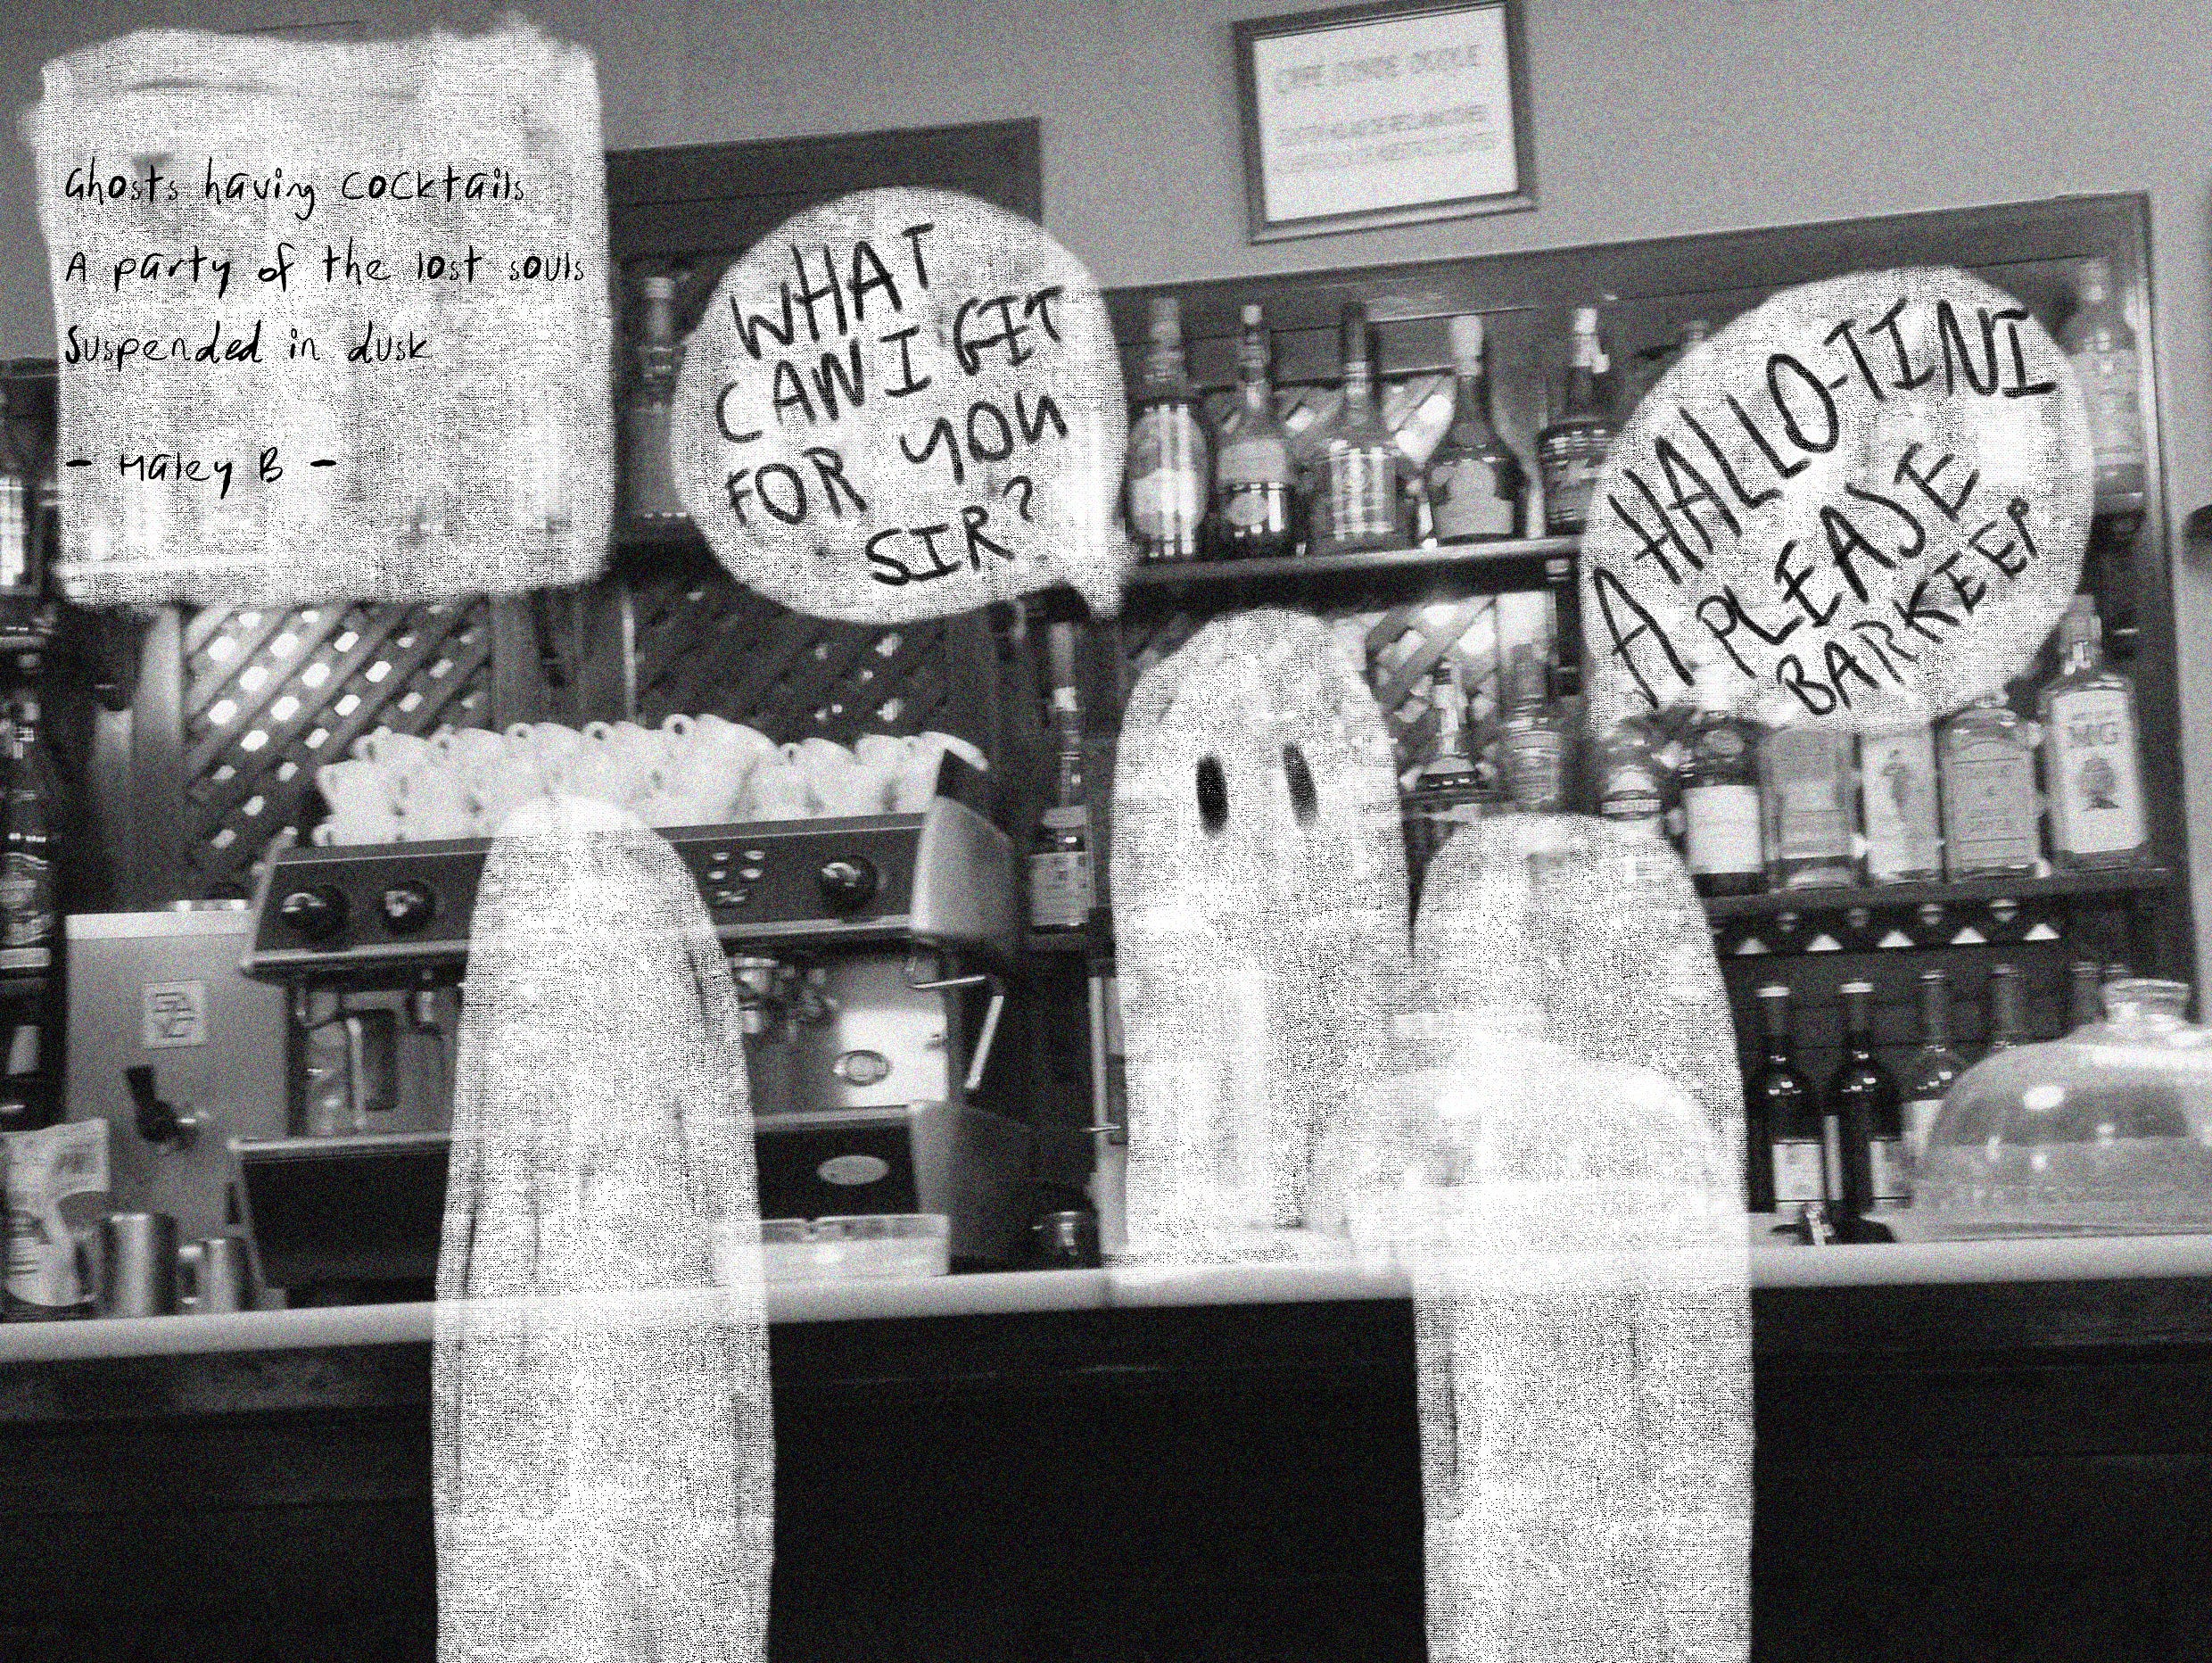 Ghosts having cocktails
A party of the lost souls
Suspended in dusk
- Haley B -
WHAT
CAN I GET
FOR YOU
SIR?
A HALLO-TINI
PLEASE
BARKEEP
MG